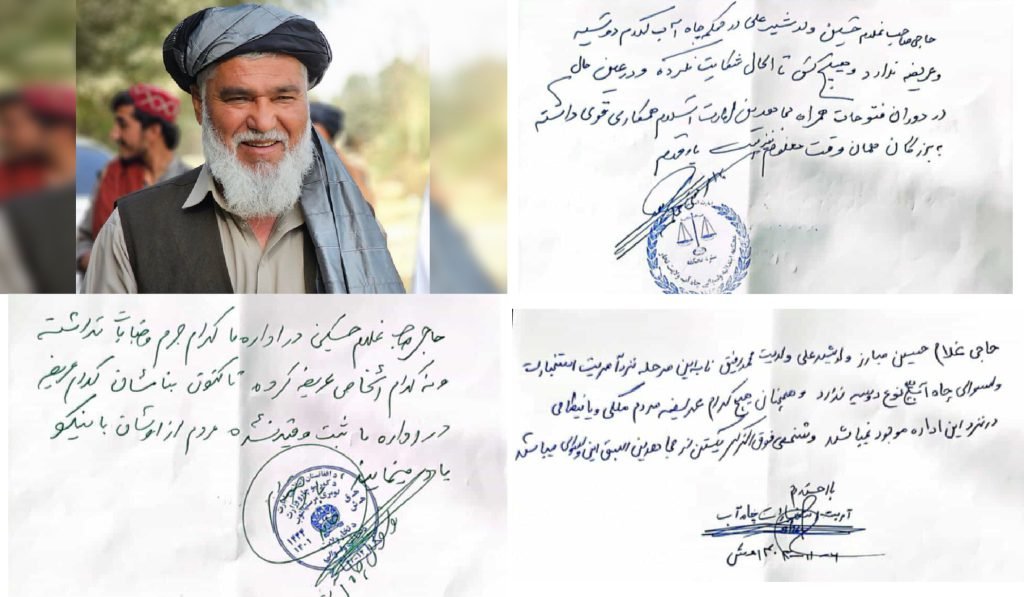 حاجی صاحب غلام حسین ولد شیر علی در محکمه چاه آب کدام دوسیه
وعریضه ندارد و هیچ کس تا الحال شکایت نکرده و در عین حال
در دوران فتوحات همراه مجاهدین امارت اسلامی همکاری قوی داشته
به بزرگان همان وقت معلوم
حاجی صاحب غلام حسین در اداره ما کدام جرم وجنایات نداشته
ونه کدام اشخاص عریضه کرده تا کنون بنامشان کدام عریضه
در اداره ما ثبت وقید نشده مردم از اوشان با نیکو
یاد مینمایند
حاجی غلام حسین مبارز ولد شیر علی ولدیت محمد رفیق تا به این مرحله نزد آمریت استخبارات
ولسوالی چاه آب هیچ نوع دوسیه ندارد وهمچنان هیچ کدام عریضه مردم ملکی ویا نظامی
در نزد این اداره موجود نمیباشد وشخص فوق الذکر یکتن از مجاهدین السبق این ولسوالی میباشد
بااحترام
آمریت استخبارات چاه آب